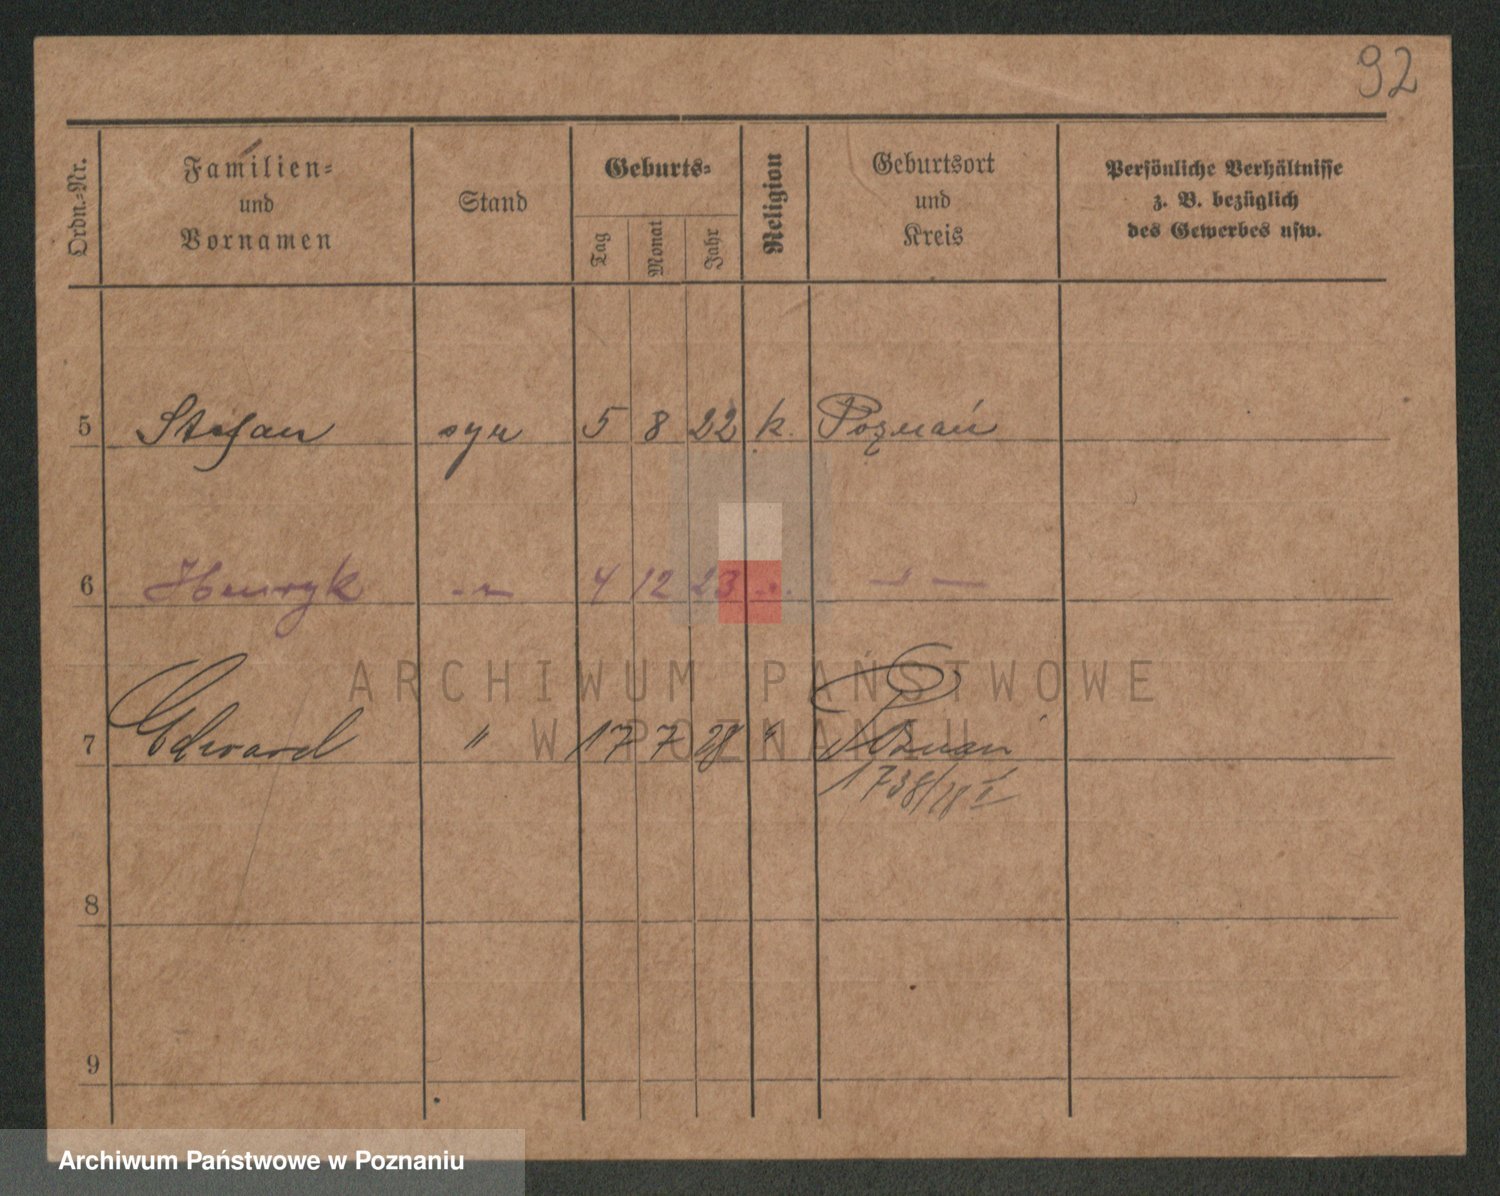 92
Ordn.-Nr.
Familien-
und
Vornamen
Stand
Geburts-
Tag
Monat
Jahr
Religion
Geburtsort
und
Kreis
Persönliche Verhältnisse
z. B. bezüglich
des Gewerbes usw.
5 Stefan syn 5 8 22 k. Poznań
6 Henryk -"- 4 12 23 -"- -"-
ARCHIWUM PAŃSTWOWE
W POZNANIU
7 Edward " 17 7 28 " Poznań
1738/28 I
8
9
Archiwum Państwowe w Poznaniu